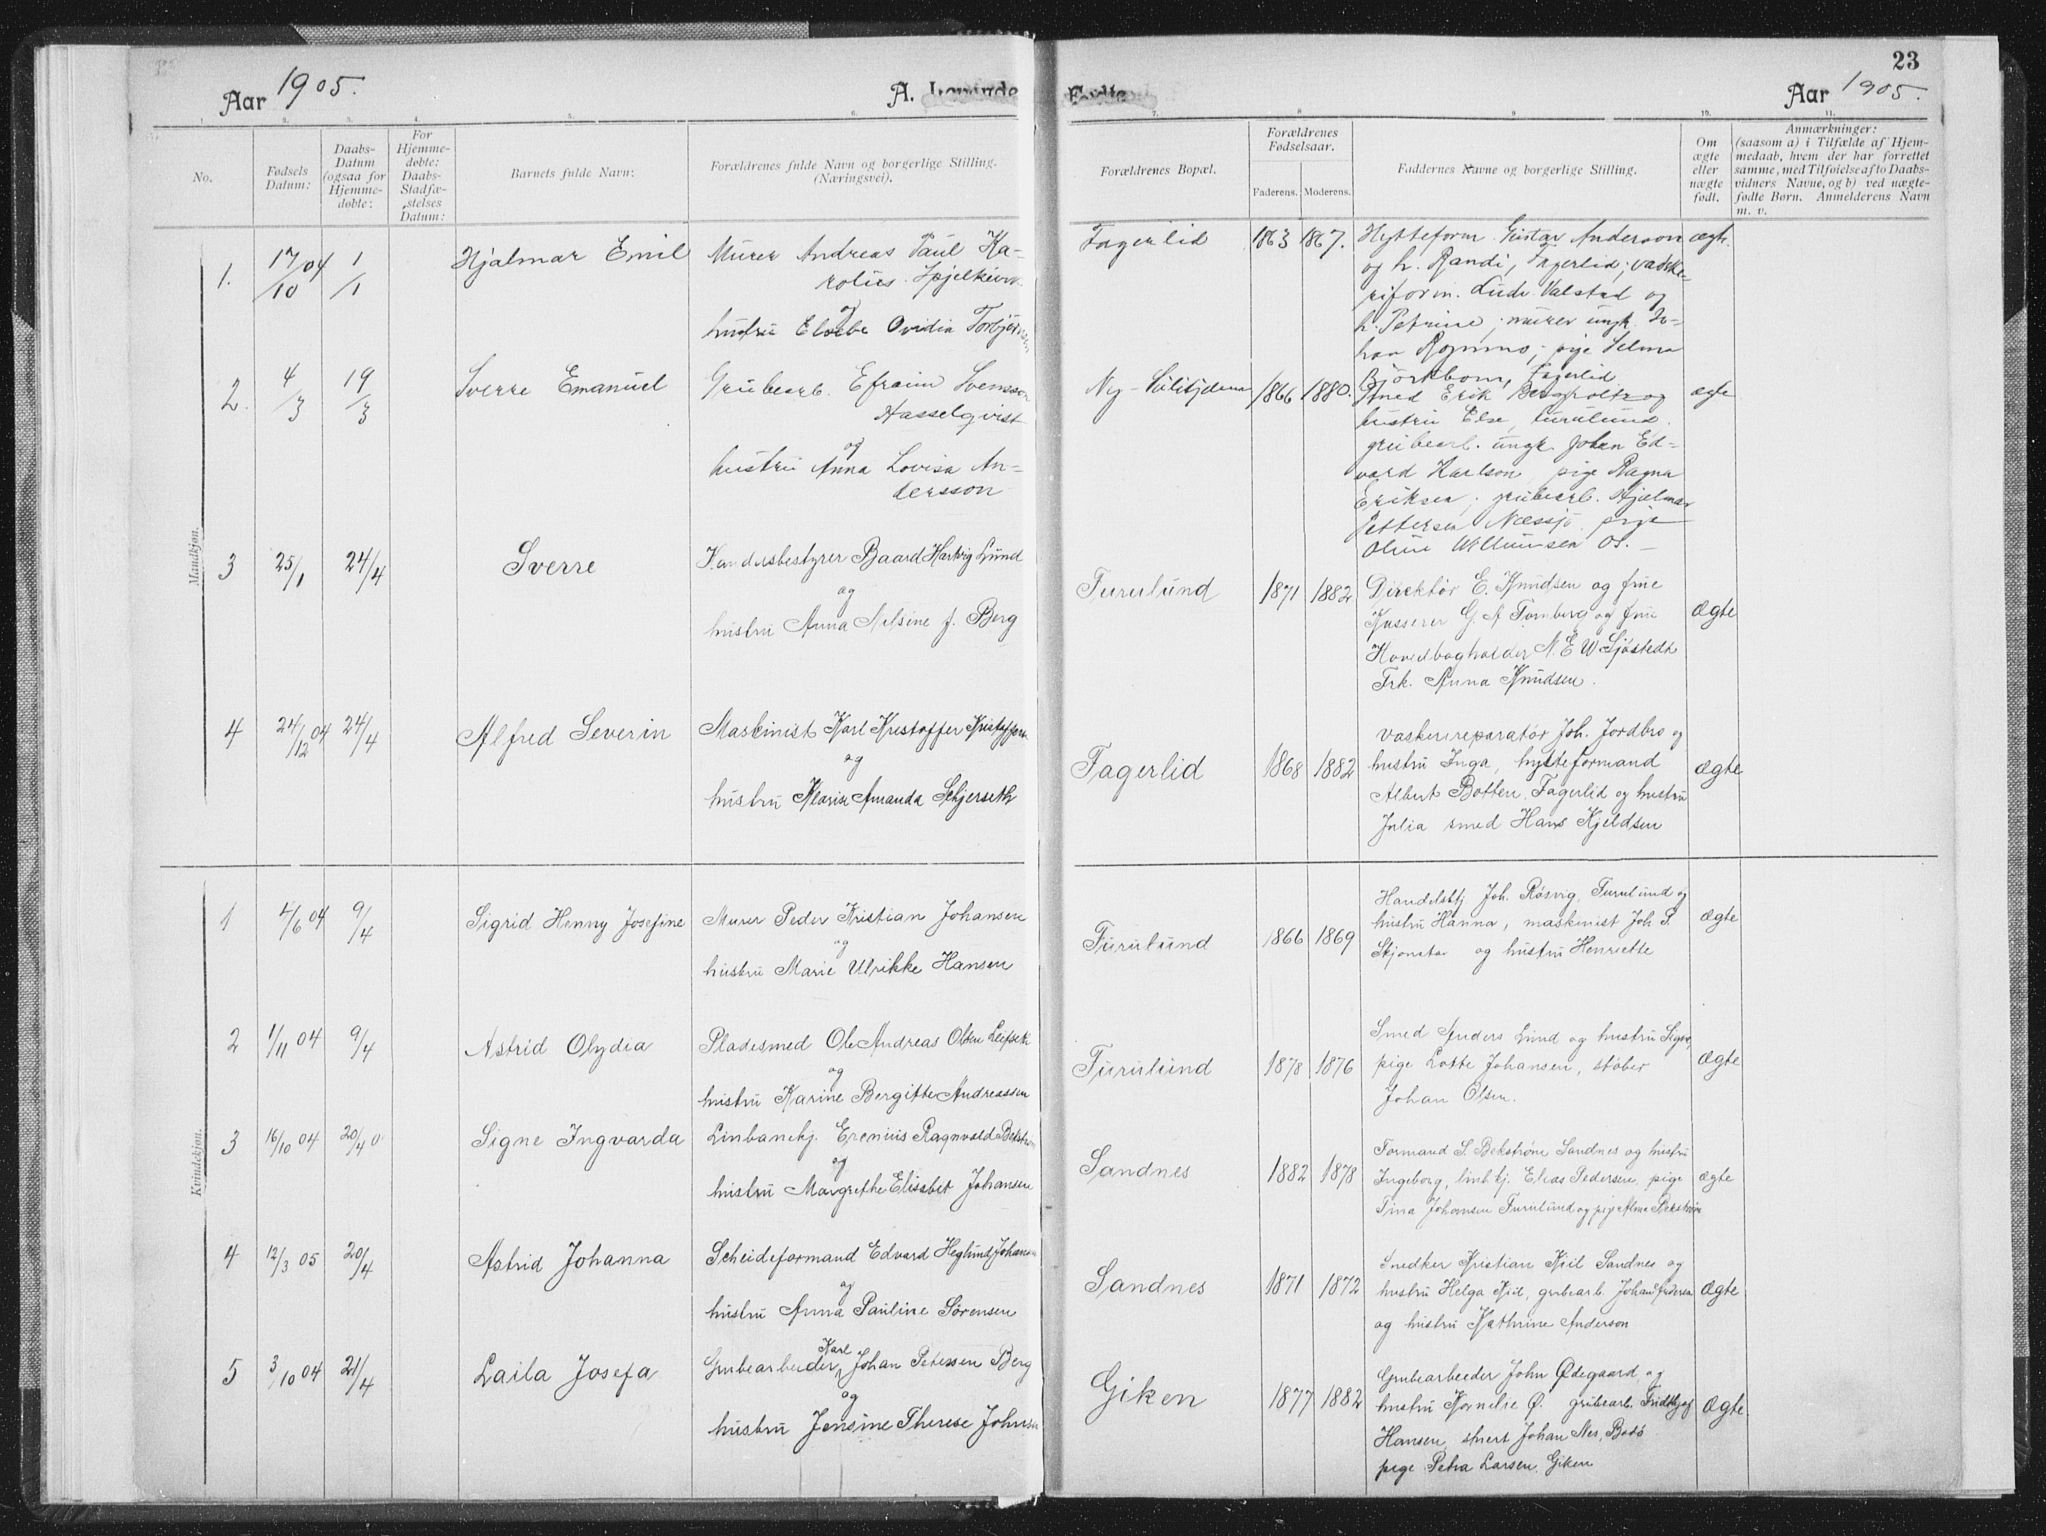 23
Aar 1905.
A. Levende
Fødte
Aar 1905.
1. 2. 3. 4. 5. 6. 7. 8 9 10. 11.
No.
Fødsels Datum:
Daabs-Datum (ogsaa for Hjemme-døbte:
For Hjemme-døbte: Daabs-Stadfæ-stelses Datum:
Barnets fulde Navn:
Forældrenes fulde Navn og borgerlige Stilling.
(Næringsvei).
Forældrenes Bopæl.
Forældrenes Fødselsaar.
Faderens. Moderens.
Faddernes Navne og borgerlige Stilling.
Om ægte eller nægte født.
Anmærkninger:
(saasom a) i Tilfælde af Hjem-
medaab, hvem der har forrettet
samme, med Tilføielse af to Daabs-
vidners Navne, og b) ved nægte-
fødte Børn. Anmelderens Navn
m. v.
Mandkjøn.
1. 17/10 04 1/1 Hjalmar Emil
Murer Andreas Paul Ka-
rolius
og
hustru Elsebe Ovidia
Fagerlid 1863 1867.
Hytteform. Gustav Anderson
og h. Randi, Fagerlid; vaske-
riform. Ludv. Valstad og
h. Petrine; murer ungk. Jo-
han; pige Selma
Björkbom, Fagerlid
ægte
2. 4/3 19/3 Sverre Emanuel
Grubearb. Efraim Svensson
Hasselqvist
og
hustru Anna Lovisa An-
dersson
Ny-Sulitjelma 1866 1880.
Smed Erik Bergholtz og
hustru Else, Furulund.
grubearb. ungk. Johan Ed-
vard Karlson pige Ragna
Eriksen; grubearb. Hjalmar
Pettersen Næssjö pige
Oline Willumsen
ægte
3 25/1 24/4 Sverre
Handelsbestyrer Baard Hartvig Lund
og
hustru Anna Nilsine f. Berg
Furulund 1871 1882
Direktør E. Knudsen og frue
Kasserer G A Tornberg og frue
Hovedbogholder N. E W Sjöstedt
Frk. Anna Knudsen.
Ægte
4 24/12 04 24/4 Alfred Severin
Maskinist Karl Kristoffer
og
hustru Klarise Amanda Schjerseth
Fagerlid 1868 1882
Vaskerireparatør Joh. Jordbro og
hustru Inga, hytteformand
Albert Botten, Fagerlid og hustru
Julia smed Hans Kjeldsen
Ægte
Kvindekjøn.
1 4/6 04 9/4 Sigrid Henny Josefine
Murer Peder Kristian Johansen
og
hustru Marie Ulrikke Hansen
Furulund 1866 1869
Handelsbtj. Joh. Røsvig, Furulund og
hustru Hanna, maskinist Joh. P.
Skjonstav og hustru Henriette
Ægte
2 1/11 04 9/4 Astrid Olydia
Pladesmed Ole Andreas Olsen Leifseth
og
hustru Karine Bergitte Andreassen
Furulund 1878 1876
Smed Anders Lund og hustru
pige Lotte Johansen, støber
Johan Olsen.
Ægte
3 16/10 04 20/4 0 Signe Ingvarda
Linbanebj. Erenius Ragnvald
og
hustru Margrethe Elisabet Johansen
Sandnes 1882 1878
Formand S. Bekstrøm Sandnes og hustru
Ingeborg, linbbtj. Elias Pedersen, pige
Tina Johansen Furulund og pige Alma Bekstrøm
Ægte
4 12/3 05 20/4 Astrid Johanna
Scheideformand Edvard Heglund Johansen
og
hustru Anna Pauline Sørensen
Sandnes 1871 1872
Snedker Kristian Kiil Sandnes og
hustru Helga Kiil, grubearb. Johan
og hustru Kathrine Anderson
Ægte
5 3/10 04 21/4 Laila Josefa
Karl
Grubearbeider Johan Petersen Berg
og
hustru Jensine Therese
Giken 1877 1882
Grubearbeeder John Ødegaard og
hustru Kornelie Ø. grubearb. Fridtjof
Hansen, stuert Johan Nes, Bodø
pige Petra Larsen, Giken
Ægte